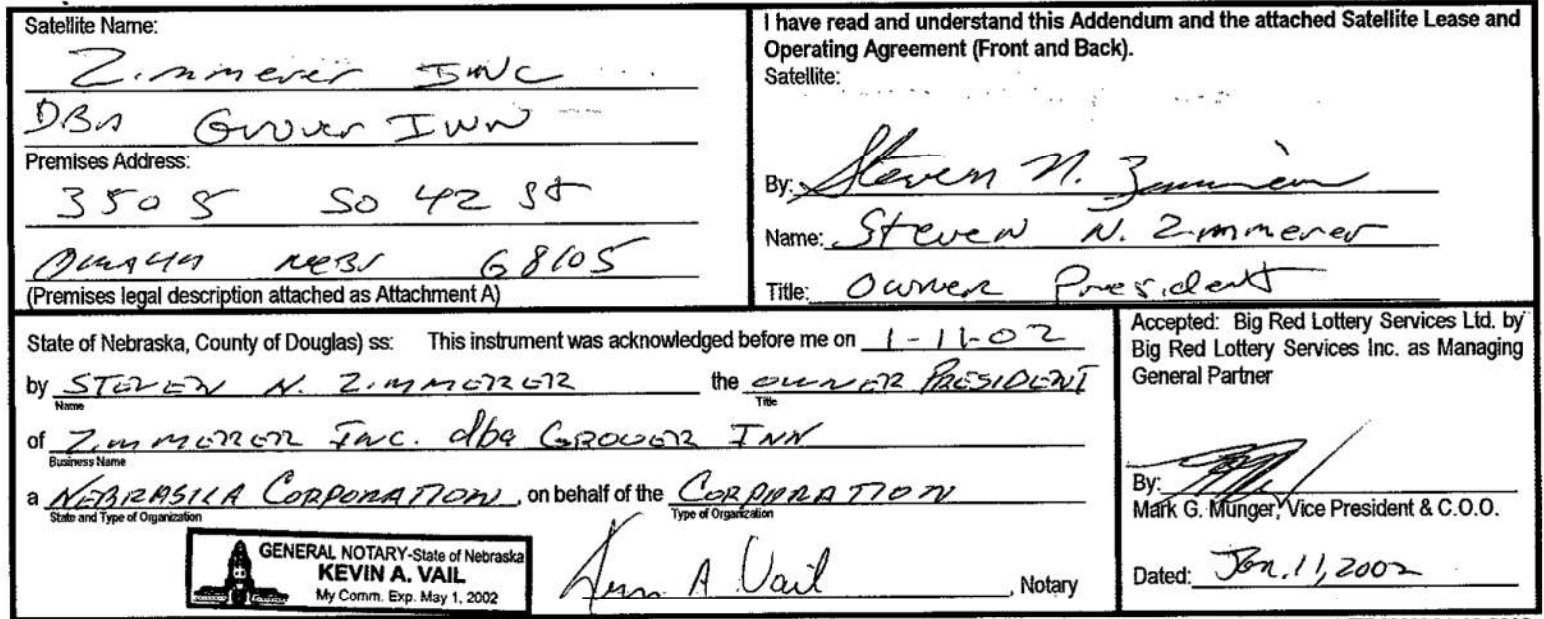 Satellite Name:
Zimmerer INC
DBA Grover INN
Premises Address:
3505 So 42 St
OMAHA NEBr 68105
(Premises legal description attached as Attachment A)
I have read and understand this Addendum and the attached Satellite Lease and
Operating Agreement (Front and Back).
Satellite:
By: Steven N. Zimmerer
Name: Steven N. Zimmerer
Title: Owner President
State of Nebraska, County of Douglas) ss: This instrument was acknowledged before me on 1-11-02
by STEVEN N. ZIMMERER the OWNER PRESIDENT
Name Title
of ZIMMERER INC. dba GROVER INN
Business Name
a NEBRASKA CORPORATION, on behalf of the CORPORATION
State and Type of Organization Type of Organization
GENERAL NOTARY-State of Nebraska
KEVIN A. VAIL
My Comm. Exp. May 1, 2002
Kevin A Vail, Notary
Accepted: Big Red Lottery Services Ltd. by
Big Red Lottery Services Inc. as Managing
General Partner
By:
Mark G. Munger, Vice President & C.O.O.
Dated: Jan. 11, 2002